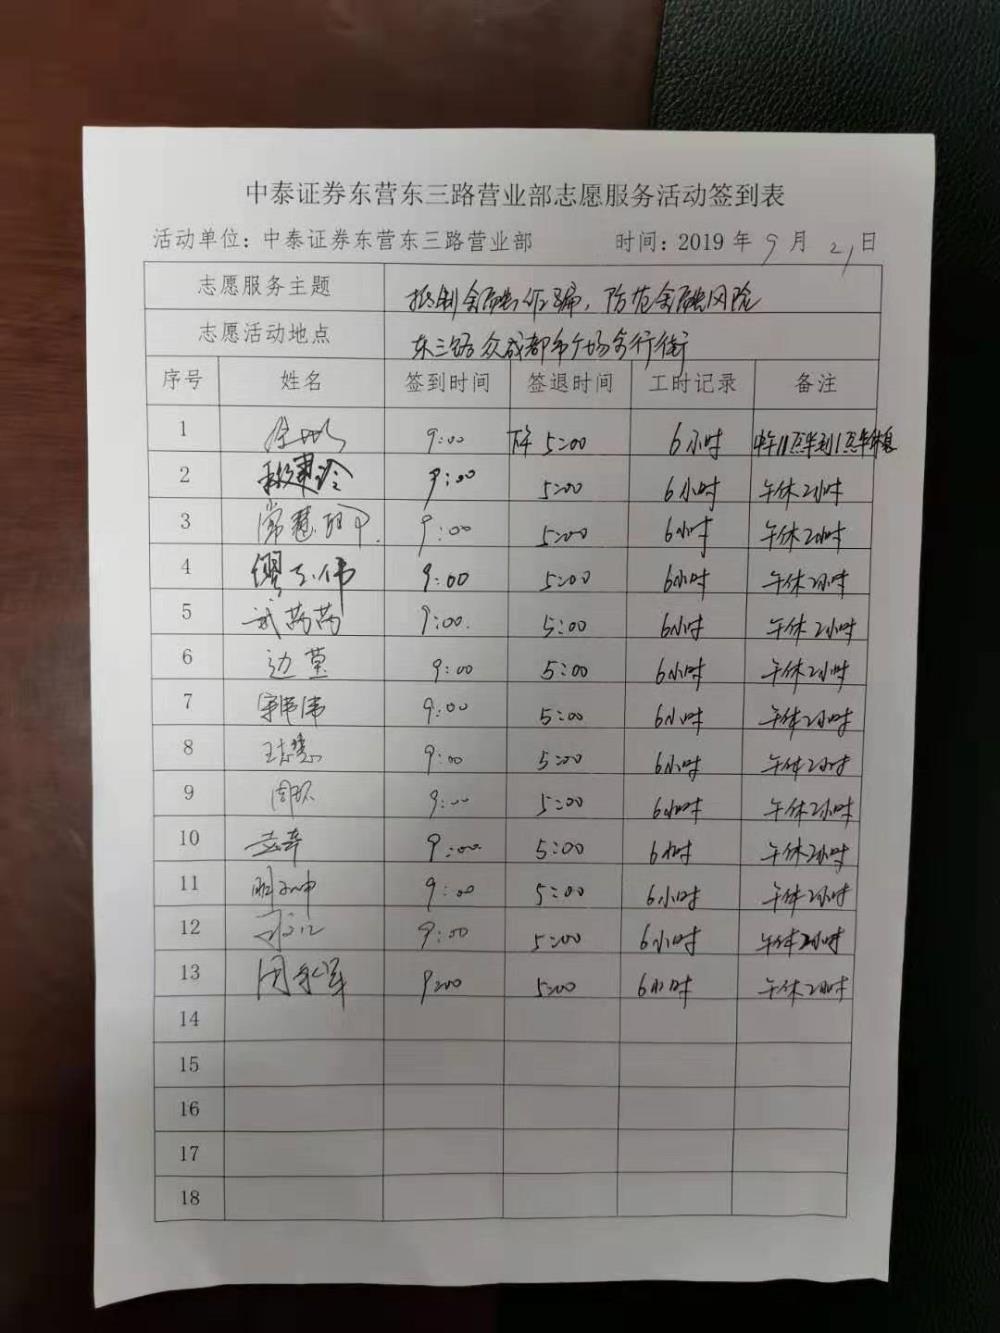 中泰证券东营东三路营业部志愿服务活动签到表
活动单位：中泰证券东营东三路营业部 时间：2019 年 9 月 21 日
志愿服务主题 抵制金融诈骗，防范金融风险
志愿活动地点 东三路众成都市广场步行街
序号 姓名 签到时间 签退时间 工时记录 备注
1 9:00 下午 5:00 6小时 中午11点半到1点半休息
2 9:00 5:00 6小时 午休2小时
3 9:00 5:00 6小时 午休2小时
4 9:00 5:00 6小时 午休2小时
5 武芮芮 9:00. 5:00 6小时 午休2小时
6 9:00 5:00 6小时 午休2小时
7 9:00 5:00 6小时 午休2小时
8 王志慧 9:00 5:00 6小时 午休2小时
9 9:00 5:00 6小时 午休2小时
10 9:00. 5:00 6小时 午休2小时
11 9:00 5:00 6小时 午休2小时
12 9:00 5:00 6小时 午休2小时
13 9:00 5:00 6小时 午休2小时
14
15
16
17
18